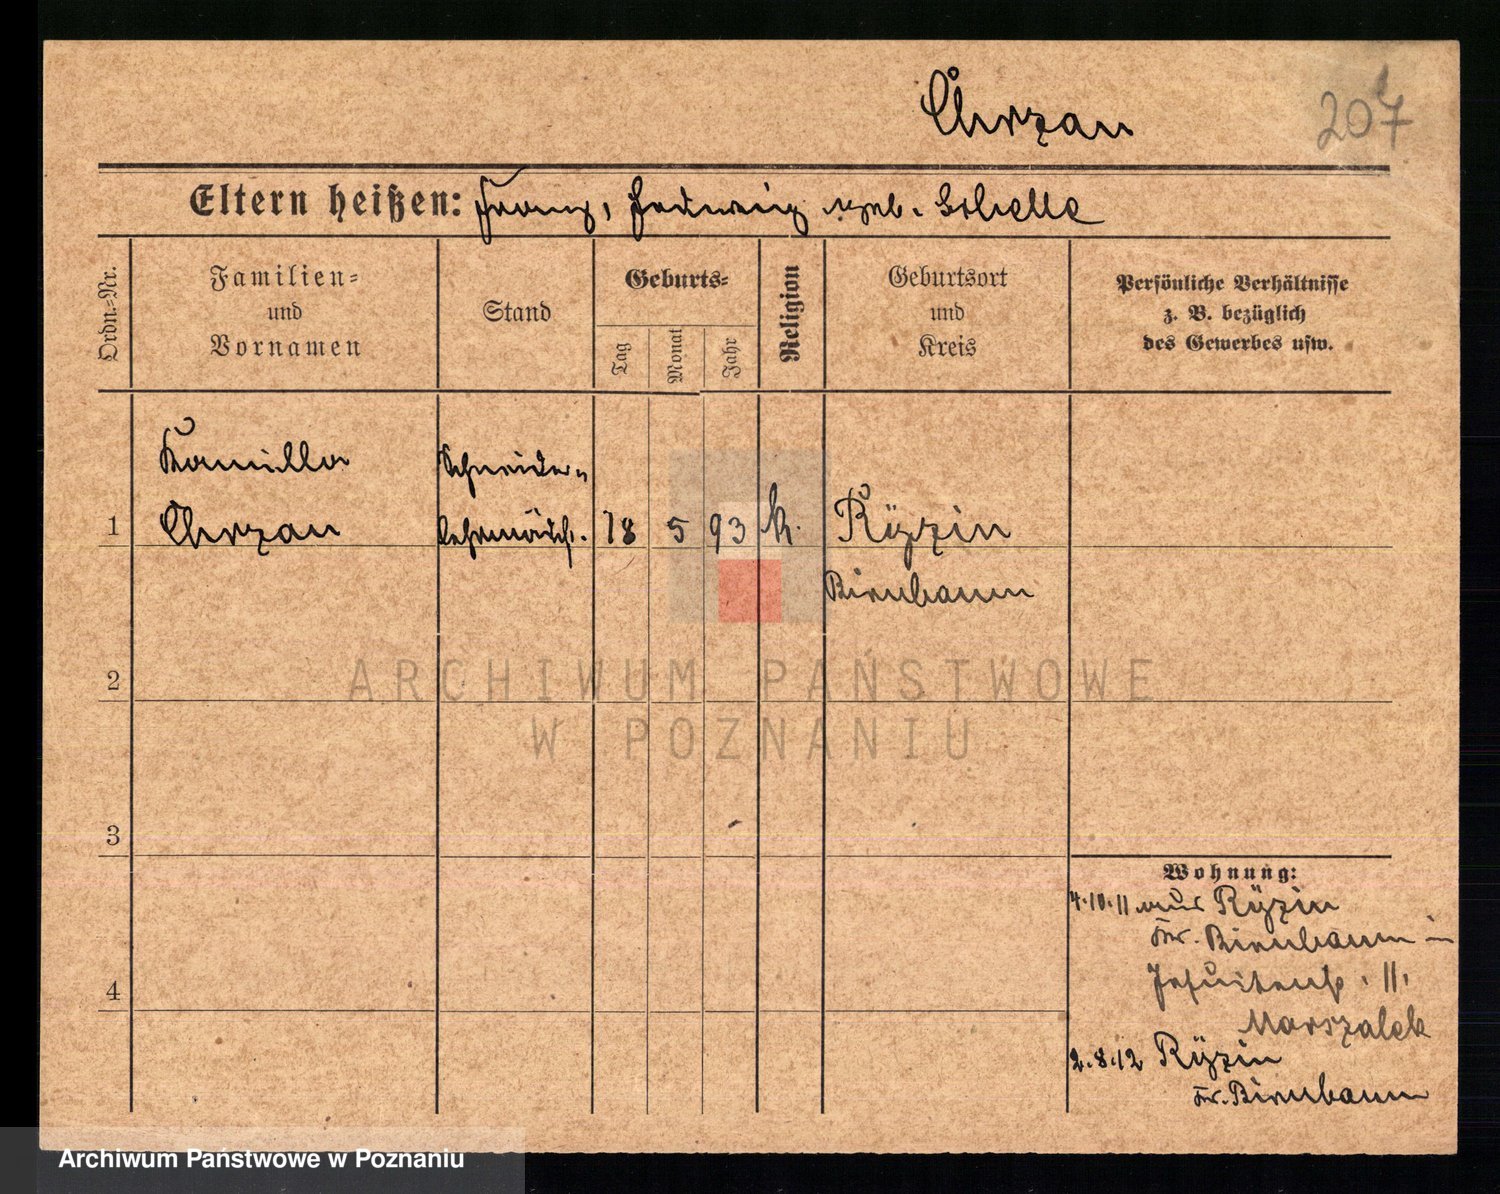 Chrzan
207
Eltern heißen: Franz, Hedwig geb. Schelle
Ordn.-Nr.
Familien-
und
Vornamen
Stand
Geburts-
Tag
Monat
Jahr
Religion
Geburtsort
und
Kreis
Persönliche Verhältnisse
z. B. bezüglich
des Gewerbes usw.
Kamilla
Chrzan
Schneider-
lehrmädch.
1
18
5
93
k.
Ryzin
Birnbaum
2
3
4
Wohnung:
4.10.11 aus Ryzin
Kr. Birnbaum
Jesuitenstr. 11.
Marszalek
2.8.12 Ryzin
Kr. Birnbaum
ARCHIWUM PAŃSTWOWE
W POZNANIU
Archiwum Państwowe w Poznaniu